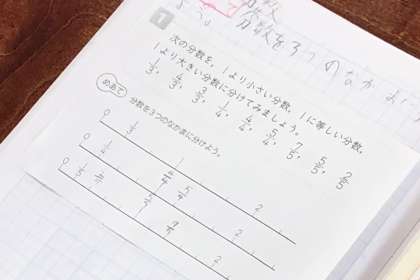 分数
分数を3つのなかま
1
次の分数を、1より小さい分数、1に等しい分数、
1より大きい分数に分けてみましょう。
1/3, 4/3, 3/3, 1/4, 4/4, 5/4, 7/5, 5/5, 2/5
めあて
分数を3つのなかまに分けよう。
0 1/3 1 2
0 1/4 4/4 5/4 2
0 1/5 2/5 5/5 7/5 2